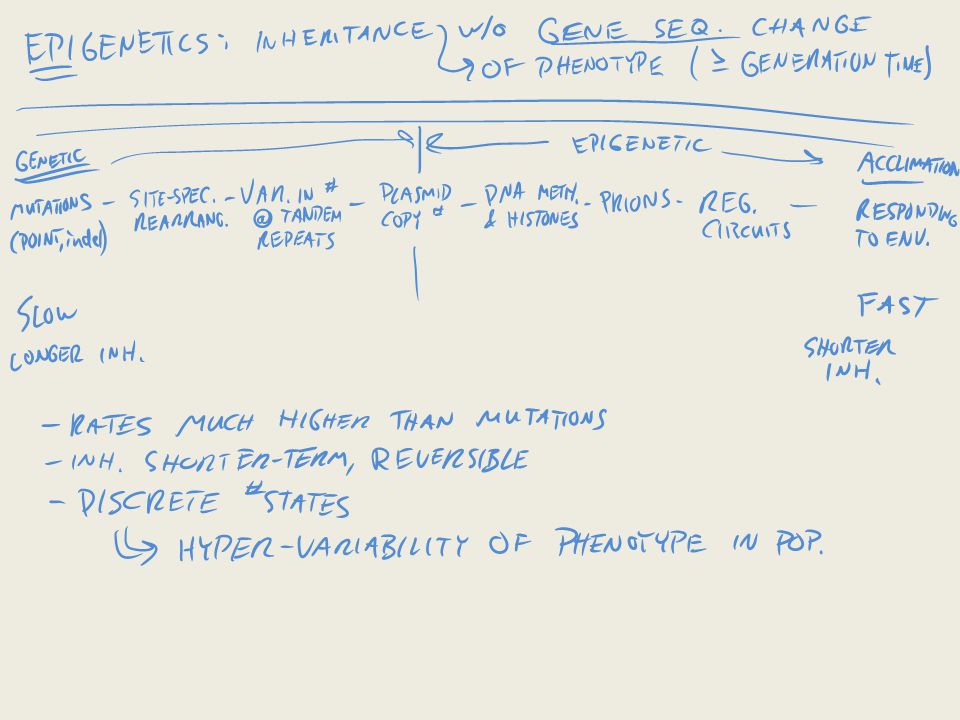 EPIGENETICS: INHERITANCE w/o GENE SEQ. CHANGE
OF PHENOTYPE (≥ GENERATION TIME)
GENETIC
EPIGENETIC
ACCLIMATION
MUTATIONS - SITE-SPEC. - VAR. IN # - PLASMID - DNA METH. - PRIONS - REG. -
(POINT, indel) REARRANG. @ TANDEM COPY # & HISTONES CIRCUITS
REPEATS
RESPONDING
TO ENV.
SLOW
FAST
LONGER INH.
SHORTER
INH.
- RATES MUCH HIGHER THAN MUTATIONS
- INH. SHORTER-TERM, REVERSIBLE
- DISCRETE # STATES
↳ HYPER-VARIABILITY OF PHENOTYPE IN POP.